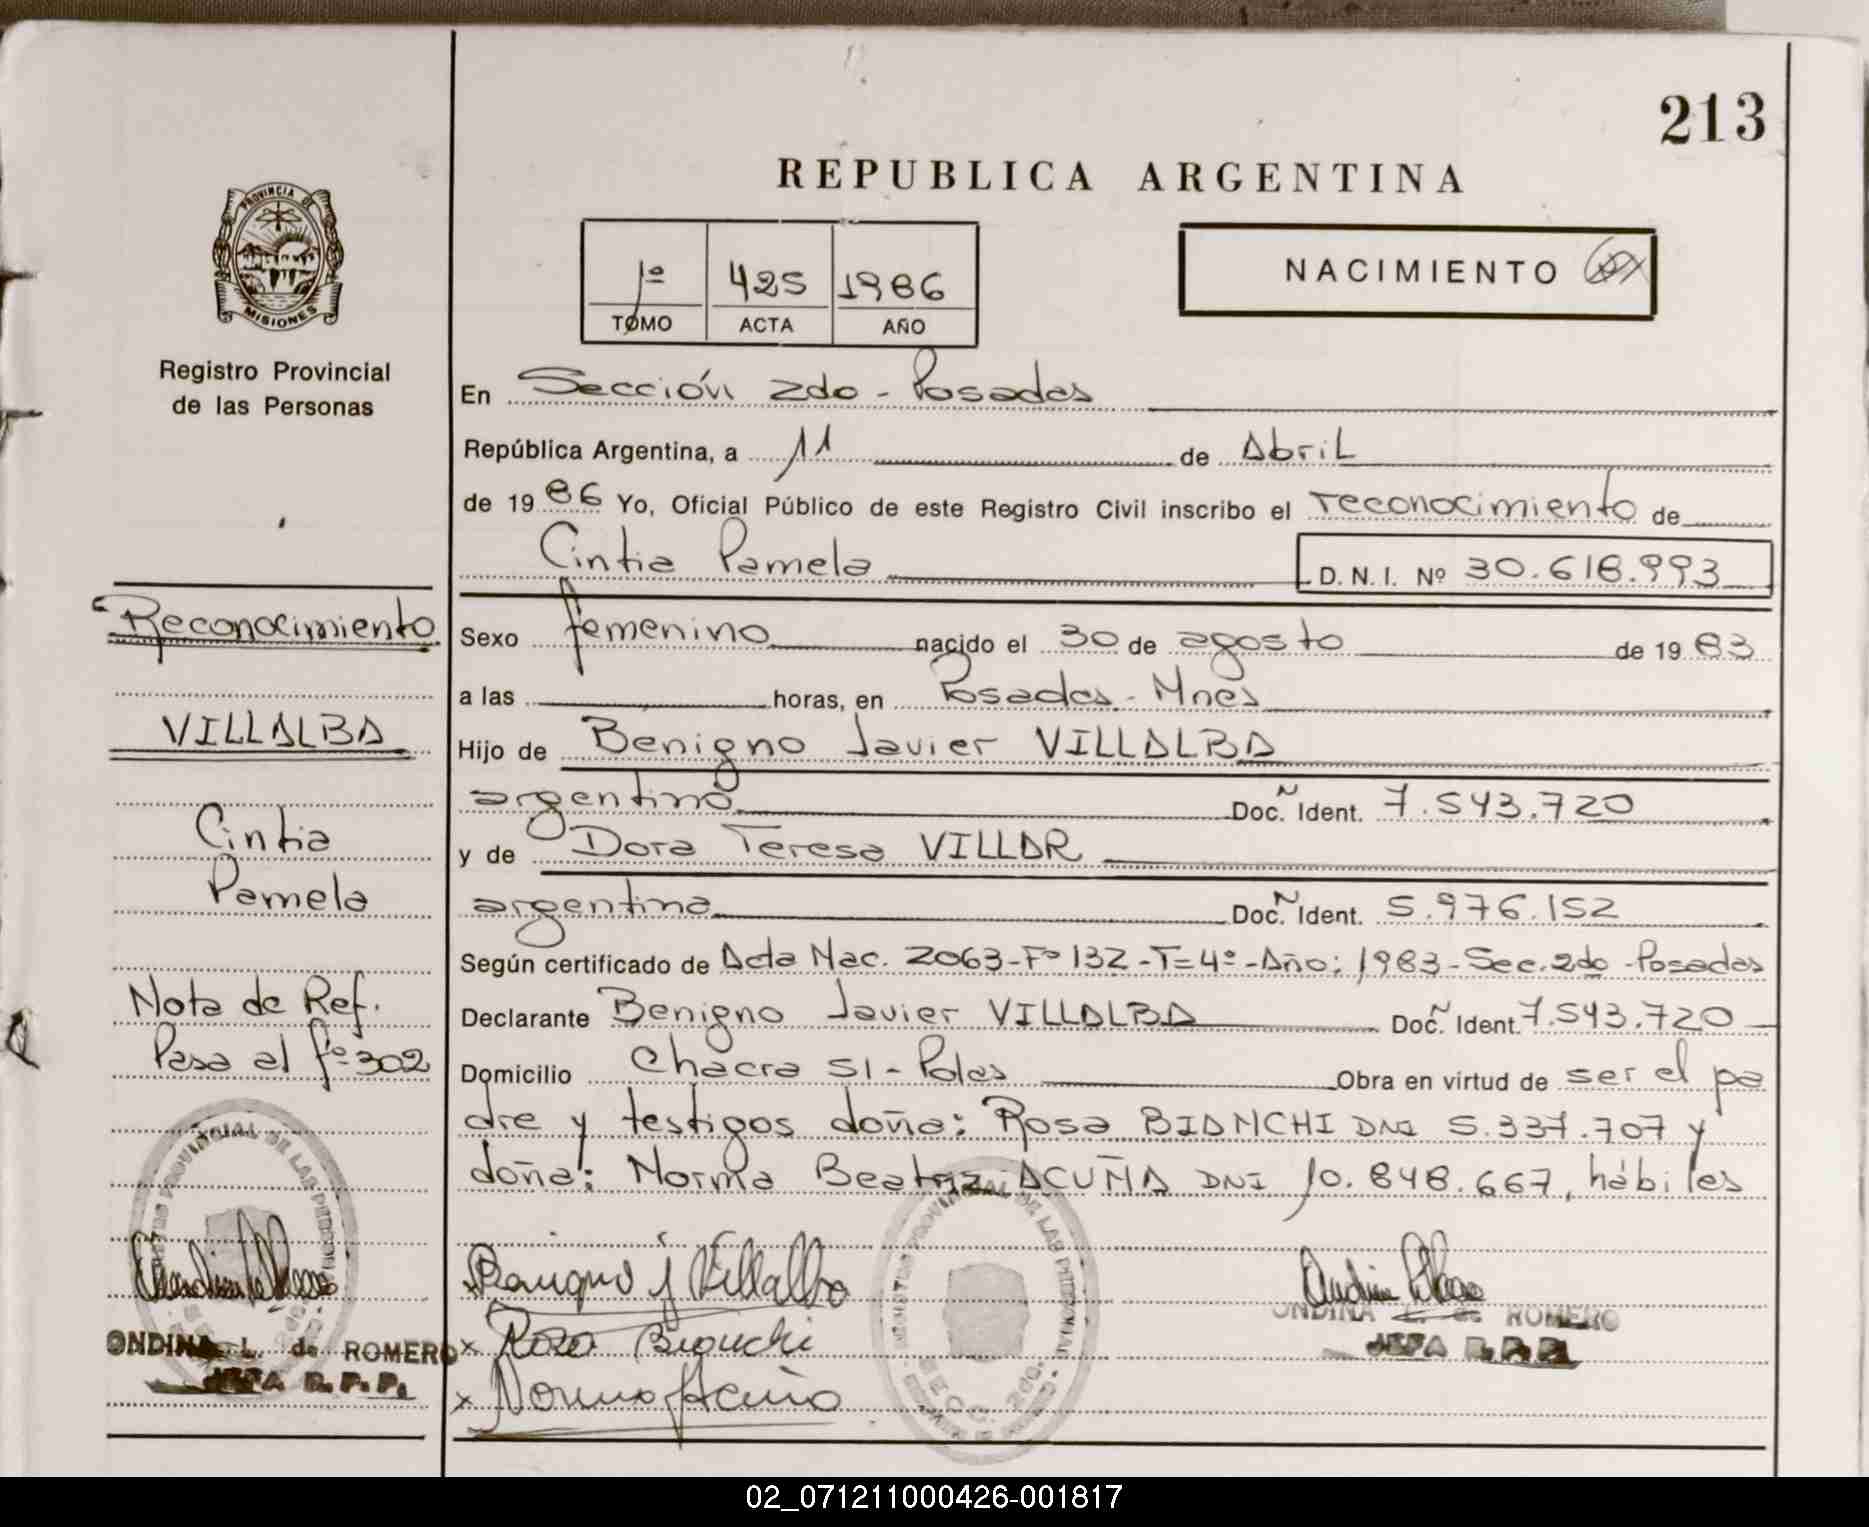 213
REPUBLICA ARGENTINA
PROVINCIA DE
MISIONES
1º 425 1986
TOMO ACTA AÑO
NACIMIENTO
Registro Provincial
de las Personas
En Sección 2do - Posadas
República Argentina, a 11 de Abril
de 1986 Yo, Oficial Público de este Registro Civil inscribo el reconocimiento de
Cintia Pamela D. N. I. Nº 30.618.993
Sexo femenino nacido el 30 de agosto de 1983
a las horas, en Posadas - Mnes
Hijo de Benigno Javier VILLALBA
argentino Doc. N Ident. 7.543.720
y de Dora Teresa VILLAR
argentina Doc. N Ident. 5.976.152
Según certificado de Acta Nac. 2063-Fº 132 -T=4º-Año: 1983-Sec. 2do -Posadas
Declarante Benigno Javier VILLALBA Doc. N Ident. 7.543.720
Domicilio Chacra 51 - Pdas Obra en virtud de ser el pa
dre y testigos doña: Rosa BIANCHI DNI 5.337.707 y
doña: Norma Beatriz ACUÑA DNI 10.848.667, hábiles
Benigno J Villalba
x Rosa Bianchi
x Norma Acuña
ONDINA L. de ROMERO
JEFA R.P.P.
Reconocimiento
VILLALBA
Cintia
Pamela
Nota de Ref.
Pasa al fº 302
ONDINA L. de ROMERO
JEFA R.P.P.
02_071211000426-001817